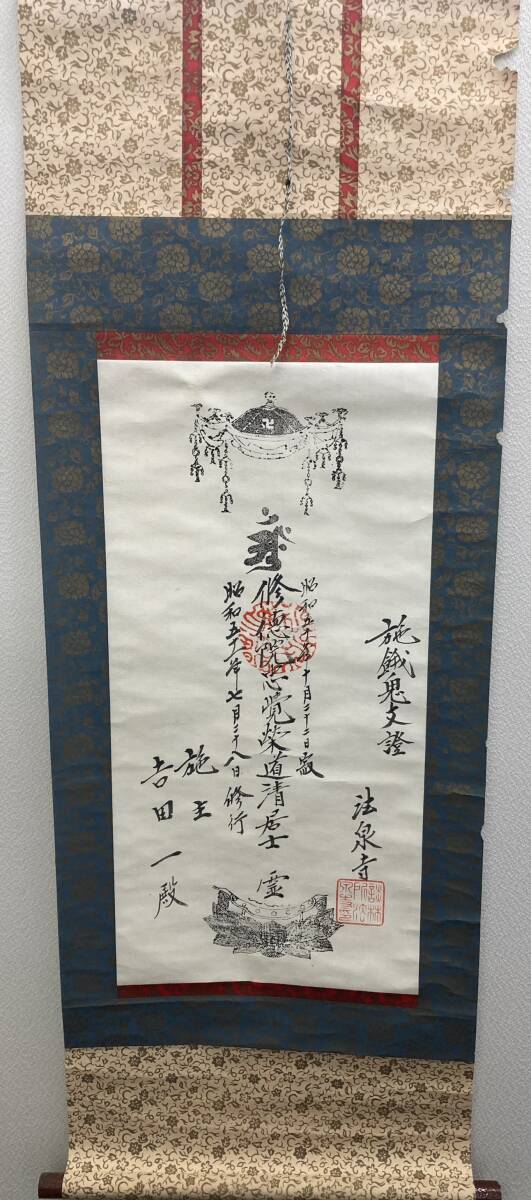 施餓鬼支證
法泉寺
昭和五十年十月二十二日寂
修徳院忠覚榮道清居士 霊
昭和五十一年七月二十八日修行
施主
吉田一殿